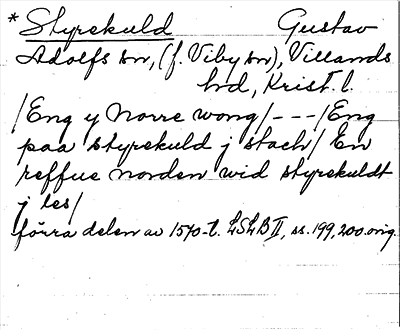 * Styrekuld Gustav
Adolfs sn, (f. Viby sn), Villands
hd, Krist. l.
/Eng y Norre wong/---/Eng
paa styrekuld j stach/ En
reffue norden wid styrekuldt
j les/
förra delen av 1570-t. LSLB II, ss. 199, 200. orig.